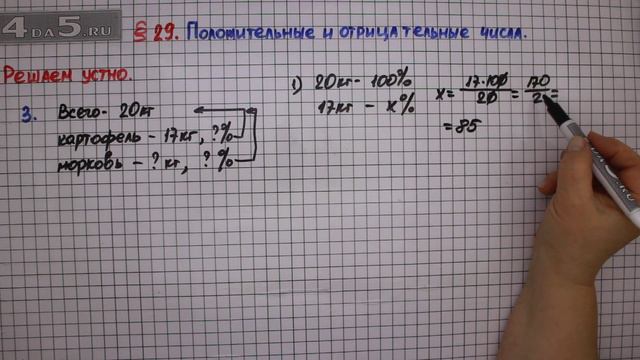 4DA5.RU
§ 29. Положительные и отрицательные числа.
Решаем устно.
3. Всего - 20кг
картофель - 17кг, ?%
морковь - ? кг, ?%
1) 20кг - 100%
17кг - x%
x = 17·100/20 = 170/2 =
= 85